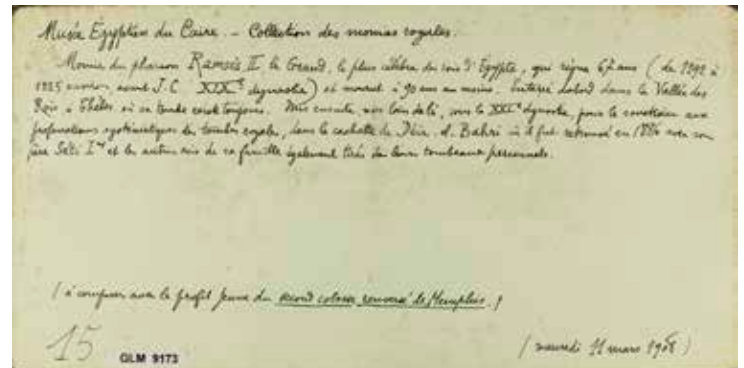 Musée Égyptien du Caire. – Collection des momies royales.
Momie du pharaon Ramsès II le Grand, le plus célèbre des rois d'Egypte, qui règne 67 ans (de 1292 à
1225 environ avant J.C. XIXe dynastie) et mourut à 90 ans au moins. Enterré d'abord dans la Vallée des
Rois à Thèbes où sa tombe existe toujours. Mis ensuite, non loin de là, vers la XXIe dynastie, pour le soustraire aux
profanations systématiques des tombes royales, dans la cachette de Déir el Bahri où il fut retrouvé en avec son
père Séti Ier et les autres rois de sa famille également tirés de leurs tombeaux personnels.
(à comparer avec le profil jeune du second colosse renversé de Memphis.)
15 GLM 9173
(samedi 11 mars)